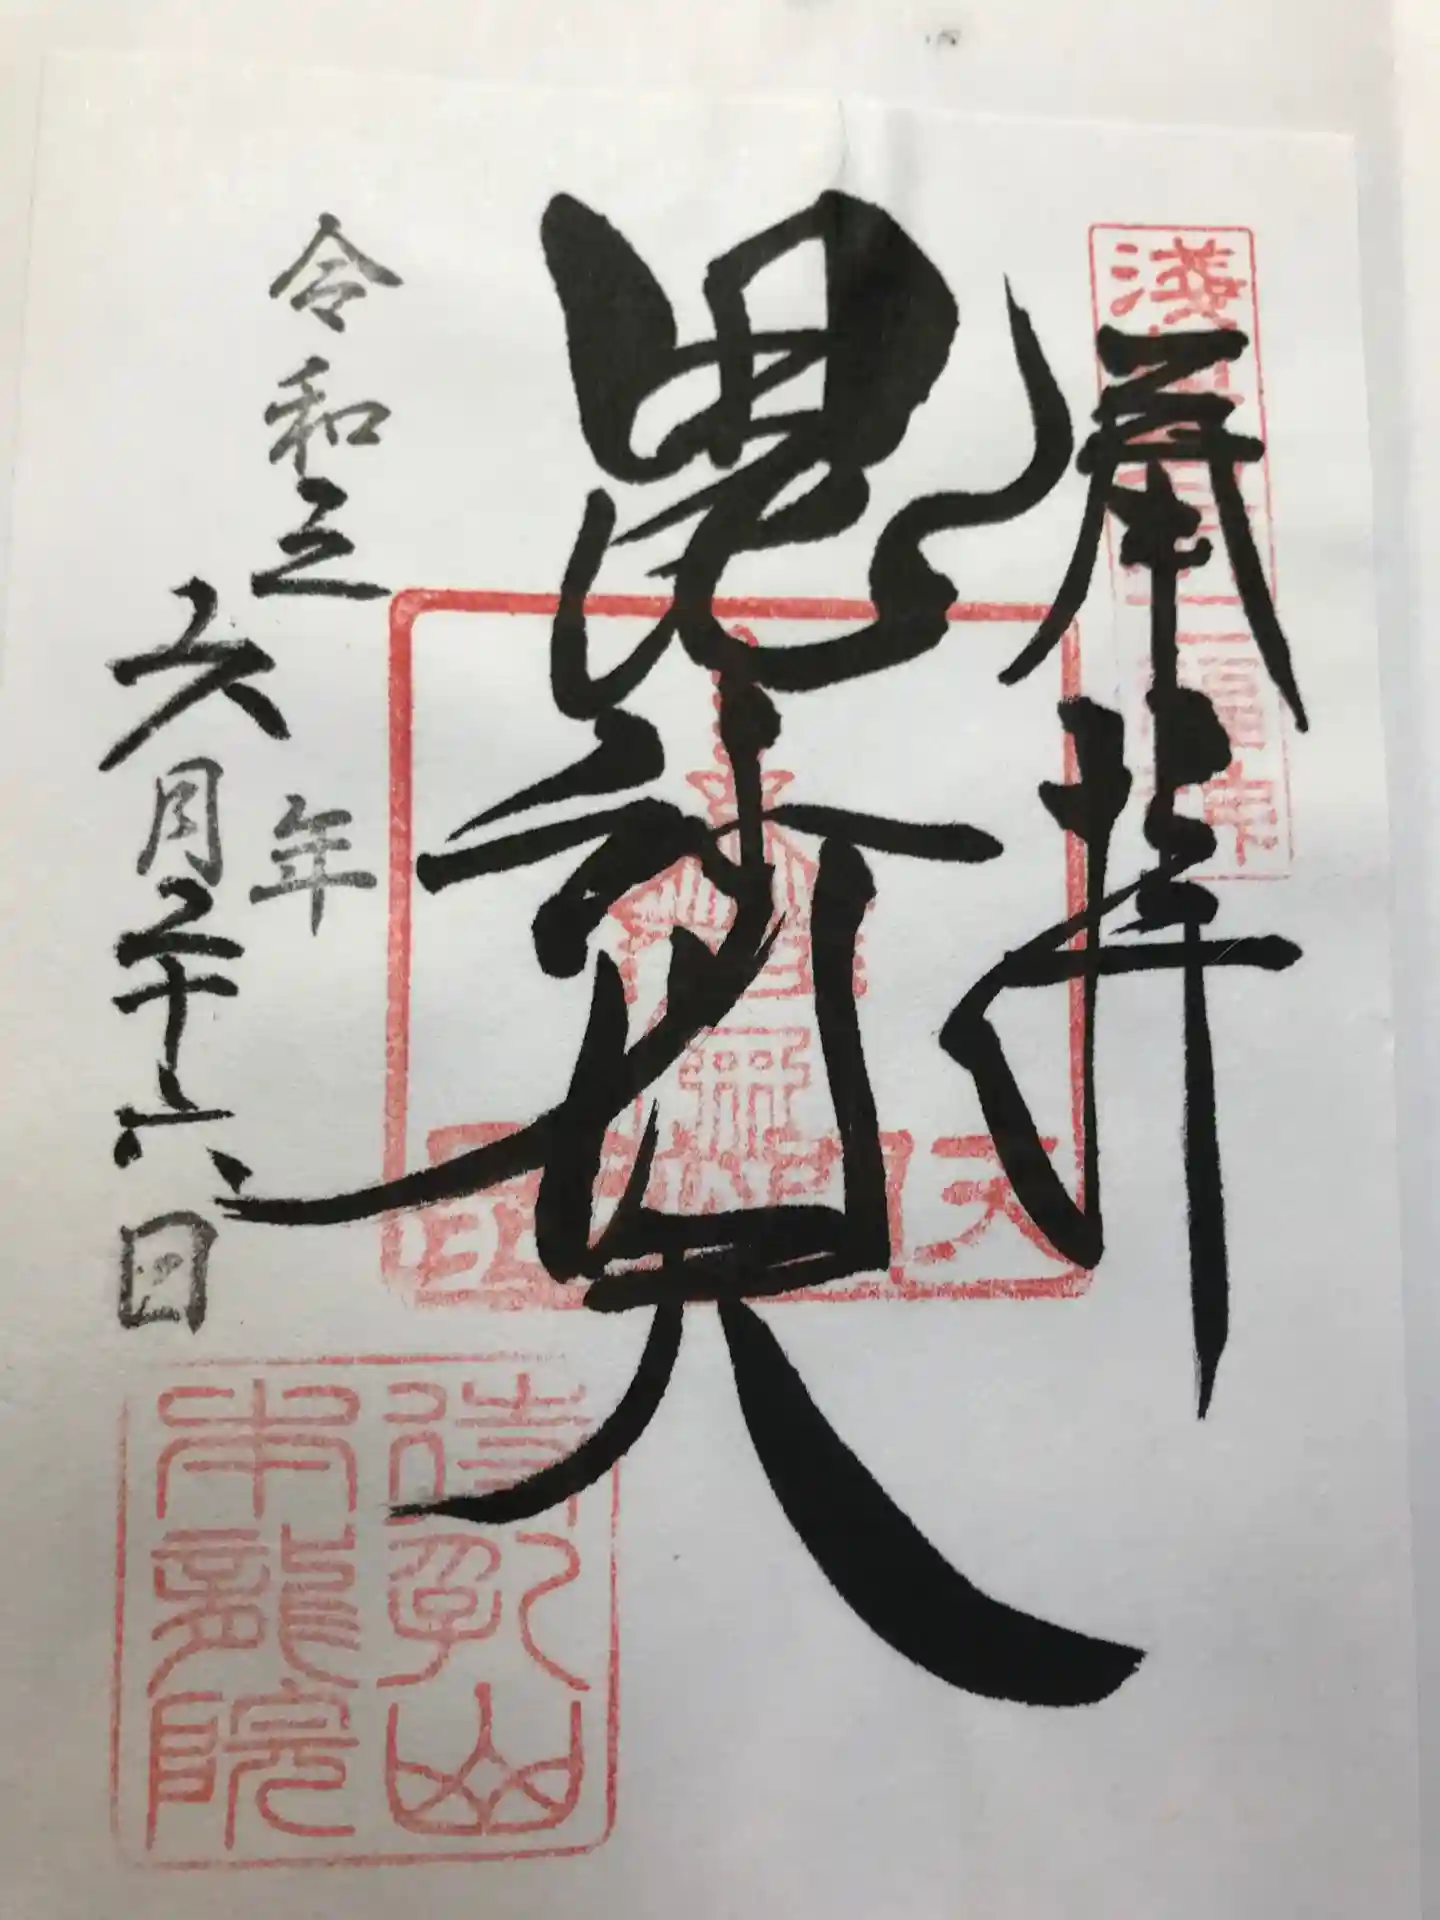 奉拝
毘沙門天
令和三年
六月二十六日
待乳山
本龍院